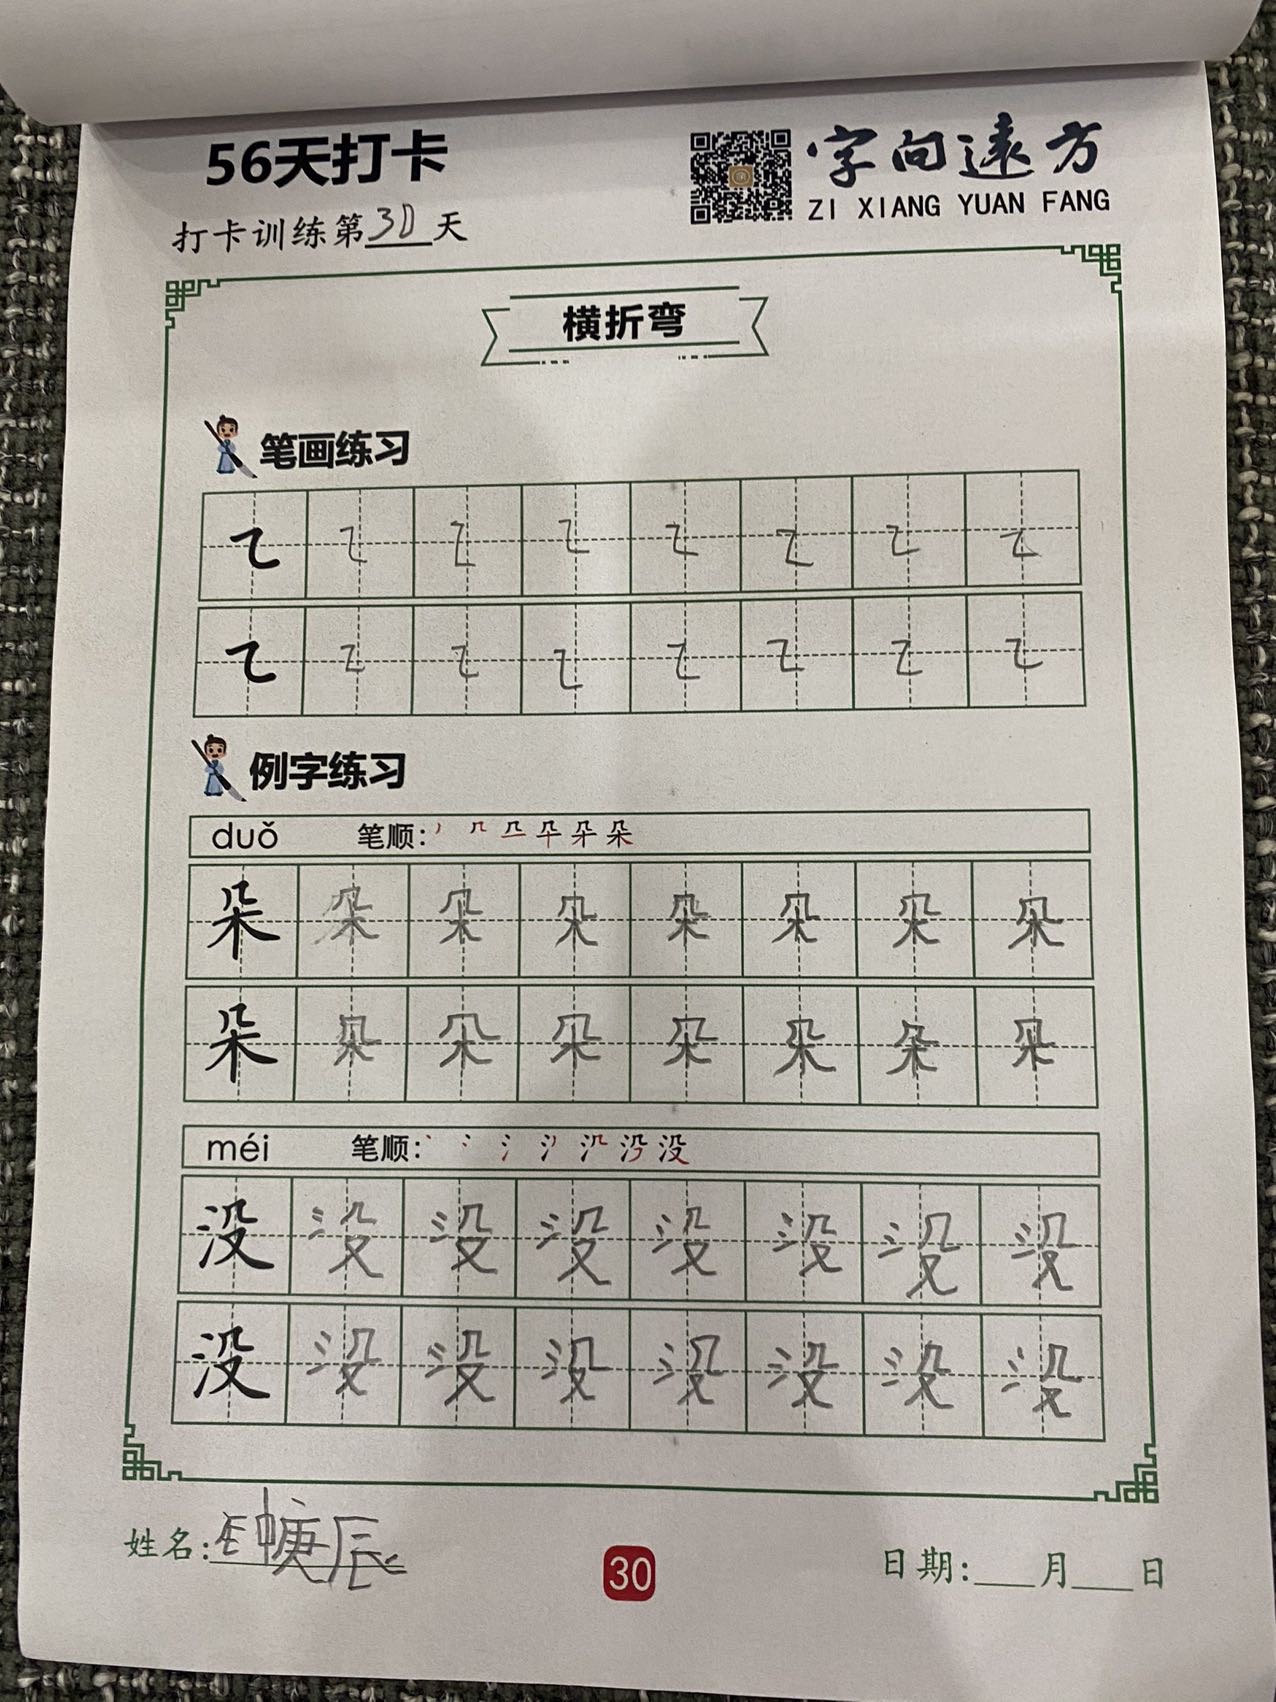 56天打卡
字向远方
ZI XIANG YUAN FANG
打卡训练第30天
横折弯
笔画练习
㇍ ㇍ ㇍ ㇍ ㇍ ㇍ ㇍ ㇍
㇍ ㇍ ㇍ ㇍ ㇍ ㇍ ㇍ ㇍
例字练习
duǒ 笔顺:
朵 朵 朵 朵 朵 朵 朵 朵
朵 朵 朵 朵 朵 朵 朵 朵
méi 笔顺:
没 没 没 没 没 没 没 没
没 没 没 没 没 没 没 没
姓名: 辰
30
日期:___月___日